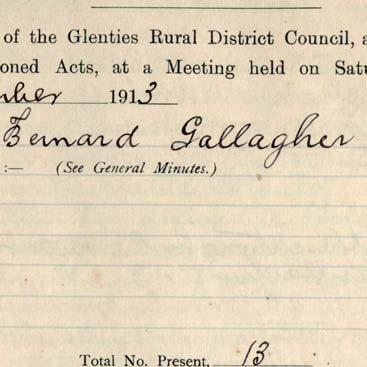 of the Glenties Rural District Council, a
oned Acts, at a Meeting held on Satu
mber 1913
Bernard Gallagher
:— (See General Minutes.)
Total No. Present, 13